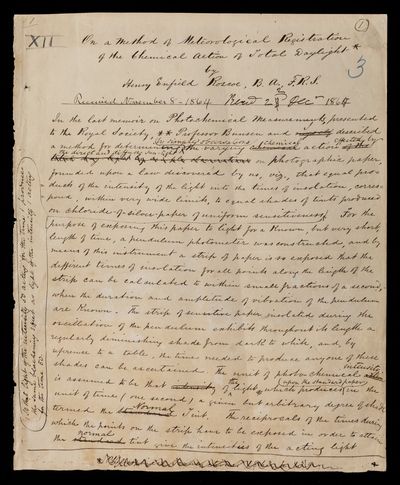 XII
1
3
On a Method of Meteorological Registration
of the Chemical Action of Total Daylight *
by
Henry Enfield Roscoe, B. A., F.R.S.
Received November 8 - 1864 Read Dec 1864
In the last memoir on Photochemical Measurements, presented
to the Royal Society, ** Professor Bunsen and described
a method for determining by simple observations the varying chemical action effected by
the direct and diffuse sunlight on photographic paper,
founded upon a law discovered by us, viz, that equal pro-
ducts of the intensity of the light into the times of insolation, corres-
pond, within very wide limits, to equal shades of tints produced
on chloride-of-silver-paper of uniform sensitiveness. For the
purpose of exposing this paper to light for a known, but very short
length of time, a pendulum photometer was constructed, and by
means of this instrument a strip of paper is so exposed that the
different times of insolation for all points along the length of the
strip can be calculated to within small fractions of a second,
when the duration and amplitude of vibration of the pendulum
are known. The strip of sensitive paper insolated during the
oscillation of the pendulum exhibits throughout its length a
regularly diminishing shade from dark to white, and, by
reference to a table, the time needed to produce any one of these
shades can be ascertained. The unit of photo chemical intensity
is assumed to be that of the light, which produces (upon the standard paper) in the
unit of time (one second) a given but arbitrary degree of shade
termed the Normal Tint. The reciprocals of the times during
which the points on the strip have to be exposed in order to attain
the normal tint give the intensities of the acting light
so that light of the intensity 50 acting for the time 1 produces
the same blackening effect as light of the intensity 1 acting
for the time 50